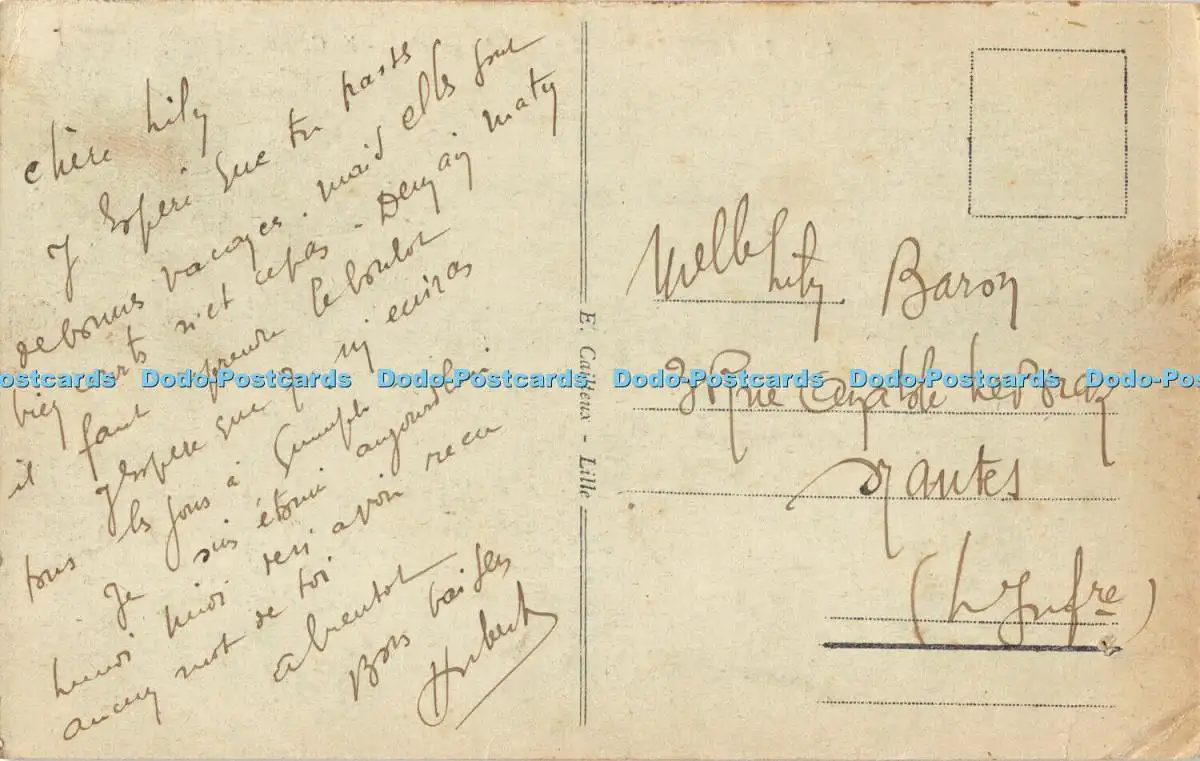 chère Lily
J'Espère que tu passes
de bonnes vacances. mais elles sont
bien courts n'est ce pas. Demain matin
il faut reprendre le boulot
J'espère que tu m'écriras
tous les jours à
Je suis étonné aujourd'hui
lundi midi avoir recu
aucun mot de toi
à bientot
Bons baisers
Hubert
E. Cailteux - Lille
Melle Lily Baron
Rue
Nantes
(L Infre)
Postcards Dodo-Postcards Dodo-Postcards Dodo-Postcards Dodo-Postcards Dodo-Pos